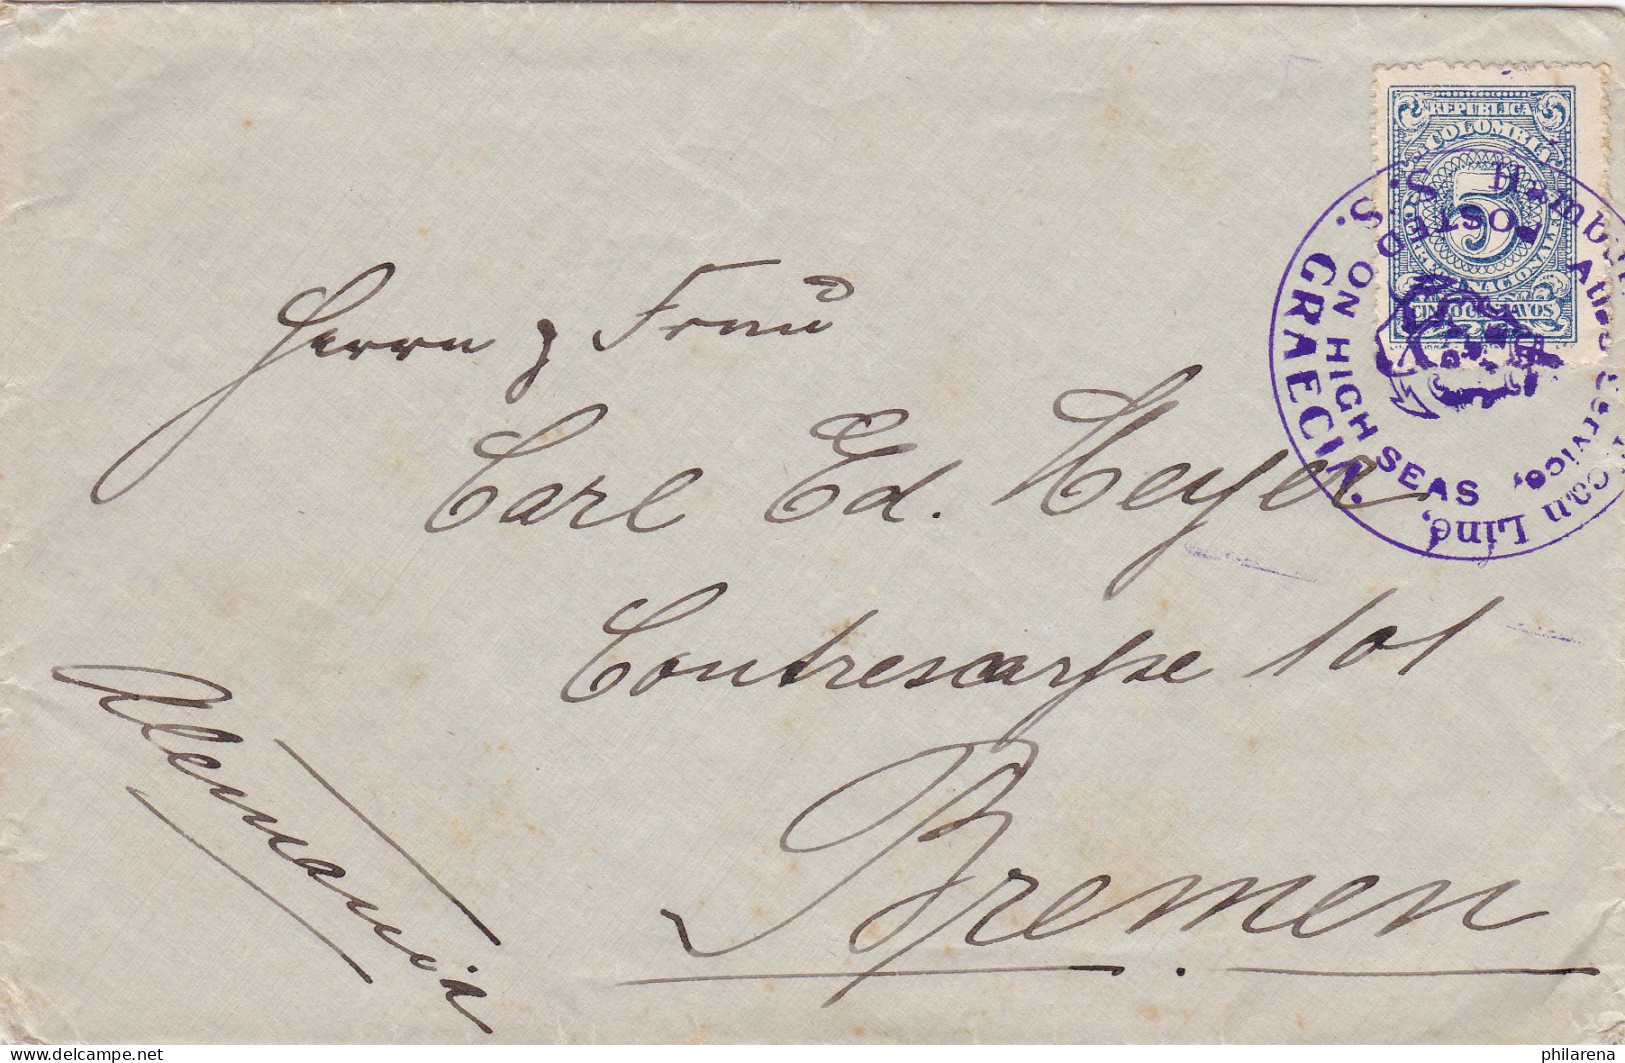 REPUBLICA
COLOMBIA
5
CINCO CENTAVOS
Hamburg American Line,
Atlas Service,
S.S. GRAECIA.
POSTED ON HIGH SEAS
Herrn & Frau
Carl Ed. Meyer
Contrescarpe 101
Bremen.
Alemania
delcampe.net
philarena